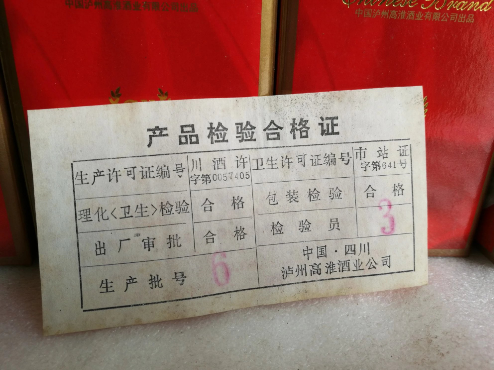 中国泸州高淮酒业有限公司出品
Chinese Brand
中国泸州高淮酒业有限公司出品
产品检验合格证
生产许可证编号 川酒许字第0057405 卫生许可证编号 市站证字第641号
理化〈卫生〉检验 合格 包装检验 合格
出厂审批 合格 检验员 3
生产批号 6 中国·四川
泸州高淮酒业公司